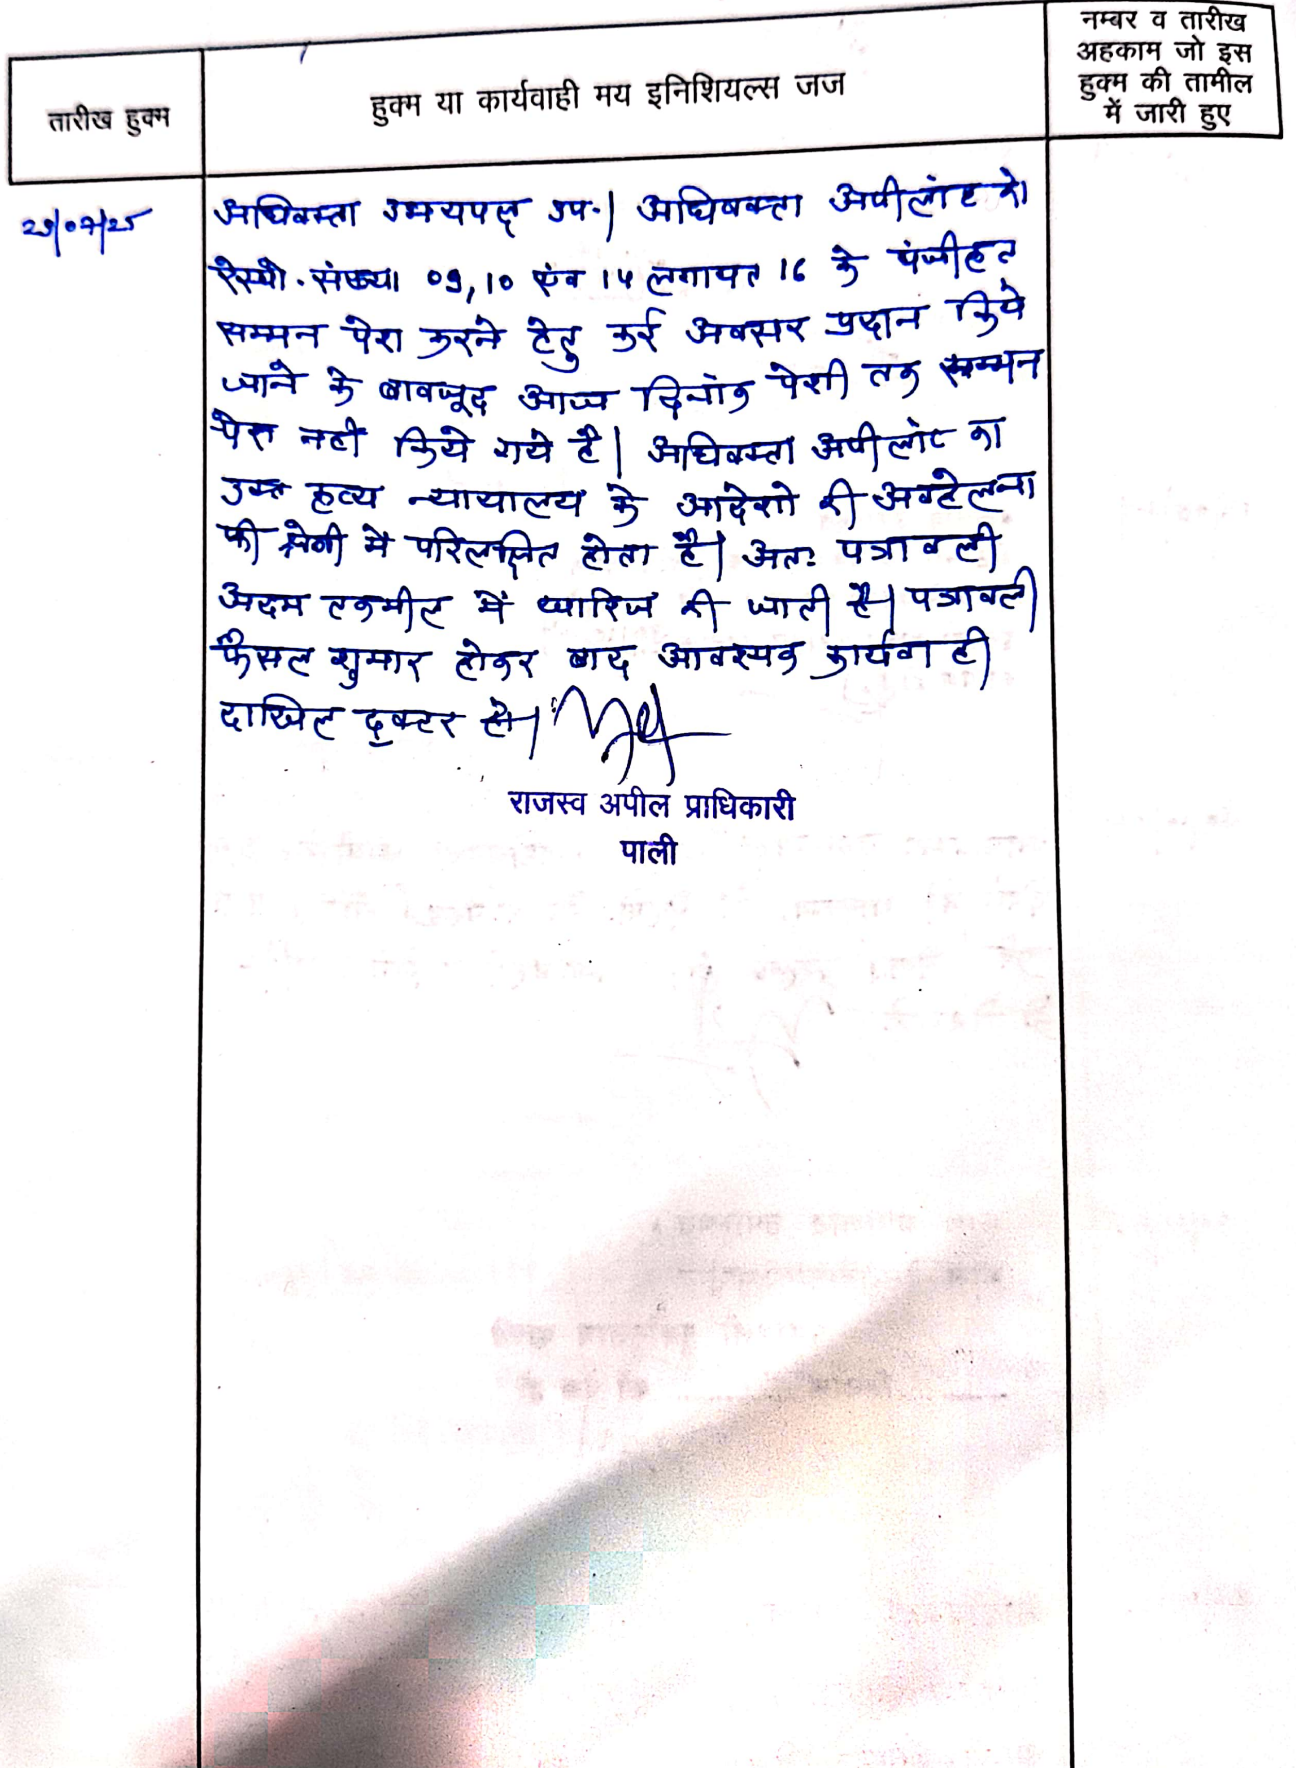 नम्बर व तारीख
अहकाम जो इस
हुक्म की तामील
में जारी हुए
तारीख हुक्म
हुक्म या कार्यवाही मय इनिशियल्स जज
29/07/25
अधिवक्ता उभयपक्ष उप.। अधिवक्ता अपीलांट को
रेस्पो. संख्या 09, 10 एंव 14 लगायत 16 के पंजीकृत
सम्मन पेश करने हेतु कई अवसर प्रदान किये
जाने के बावजूद आज दिनांक पेशी तक सम्मन
पेश नही किये गये है। अधिवक्ता अपीलांट का
उक्त कृत्य न्यायालय के आदेशो की अवहेलना
की श्रेणी मे परिलक्षित होता है। अतः पत्रावली
अदम तकमील में खारिज की जाती है। पत्रावली
फैसल शुमार होकर बाद आवश्यक कार्यवाही
दाखिल दफ्तर हो।
राजस्व अपील प्राधिकारी
पाली